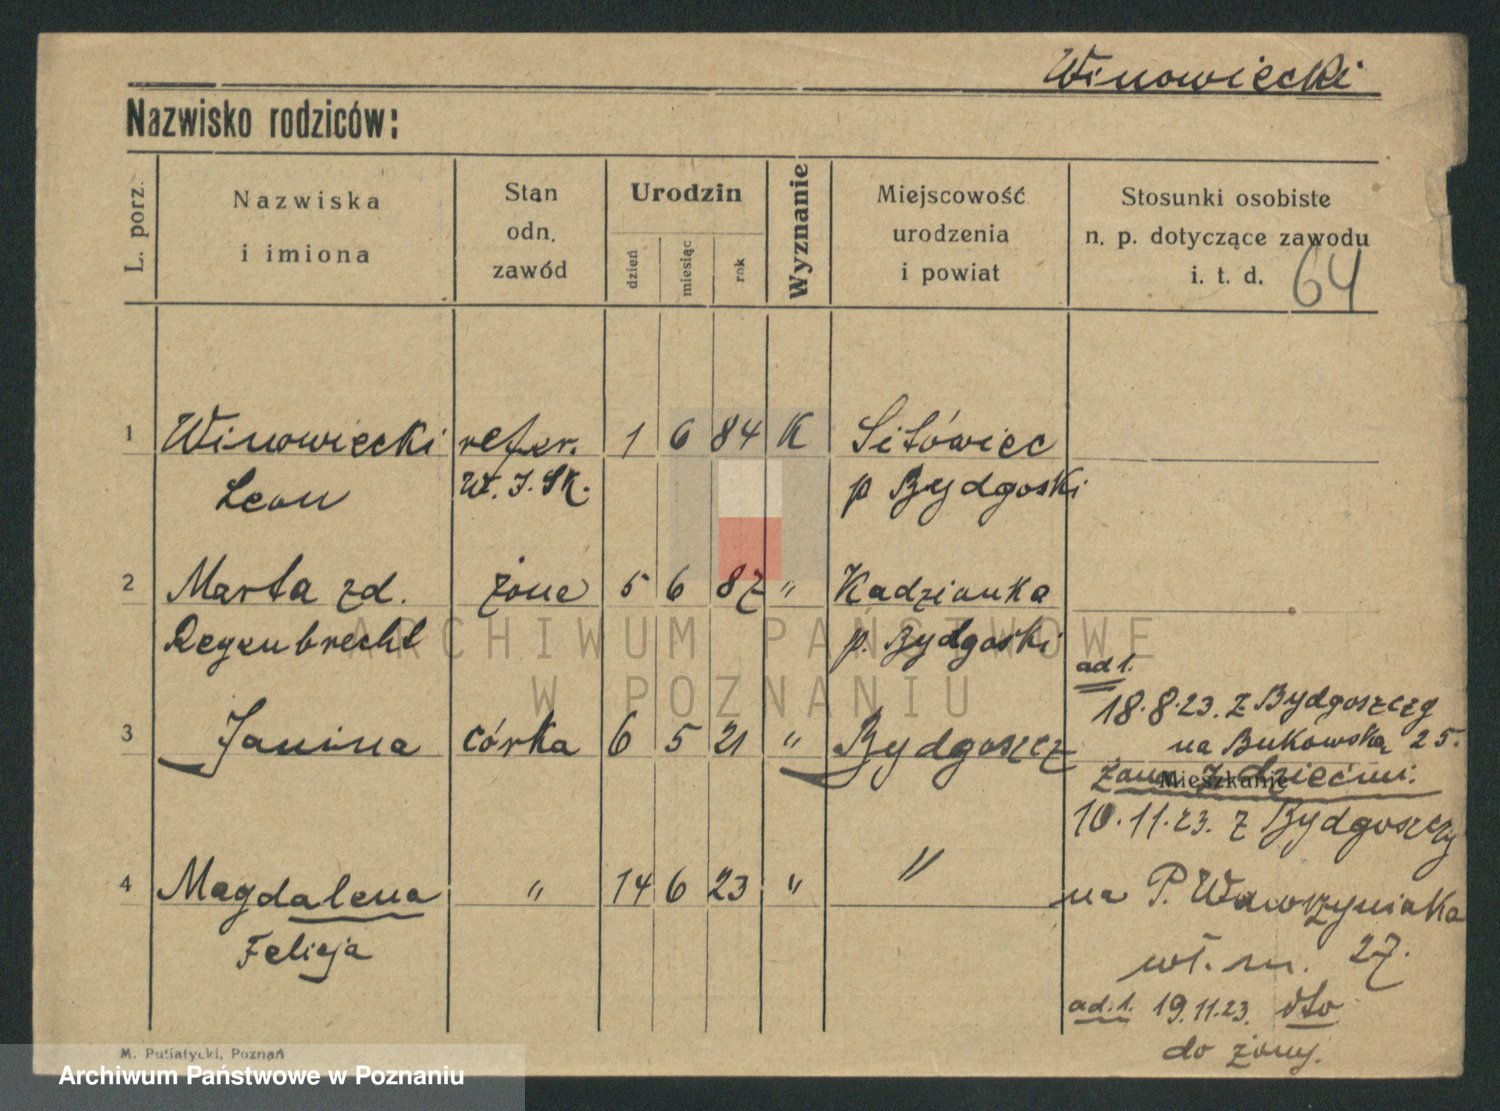 Winowiecki
Nazwisko rodziców:
L. porz.
Nazwiska
i imiona
Stan
odn.
zawód
Urodzin
dzień
miesiąc
rok
Wyznanie
Miejscowość
urodzenia
i powiat
Stosunki osobiste
n. p. dotyczące zawodu
i. t. d.
64
1 Winowiecki refer. 1 6 84 K Sitówiec
Leon p Bydgoski
2 Marta zd. żona 5 6 87 " Kadzionka
Regenbrecht p. Bydgoski
ad 1.
18.8.23. z Bydgoszczy
3 Janina córka 6 5 21 " Bydgoszcz
na Bukowską 25.
Mieszkanie
żona z dziećmi:
10.11.23. z Bydgoszczy
4 Magdalena " 14 6 23 " "
na P. Wawrzyniaka
Felicja
wł. m. 27.
ad. 1. 19.11.23. dto
do żony.
M. Putiatycki, Poznań
ARCHIWUM PAŃSTWOWE
W POZNANIU
Archiwum Państwowe w Poznaniu